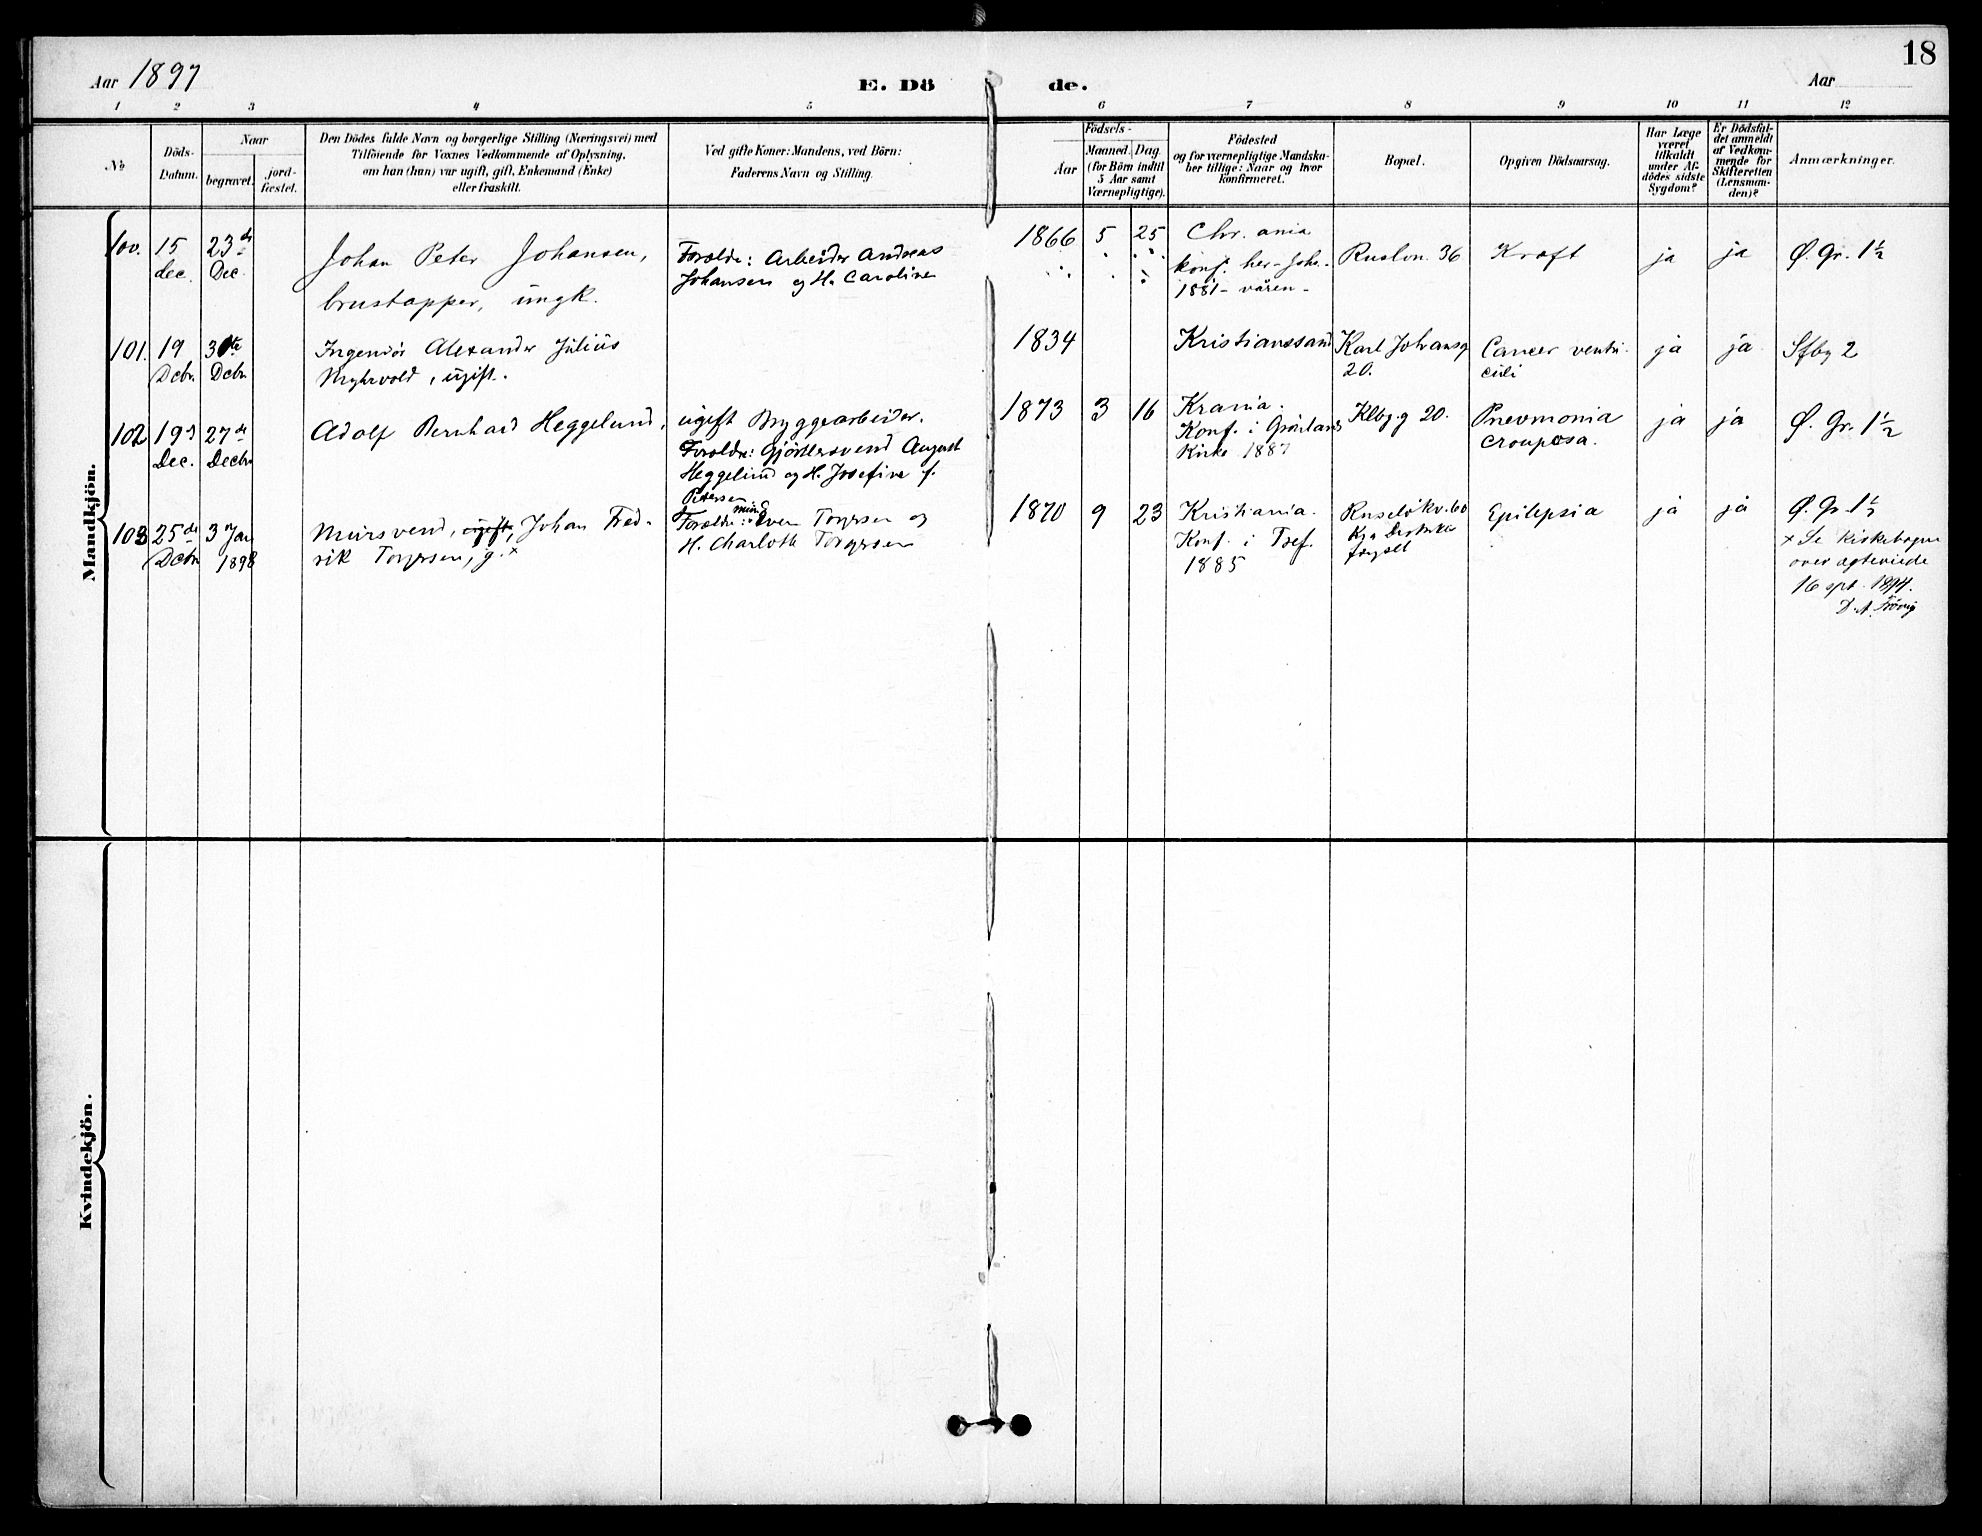 18
Aar 1897
E. Dö de.
Aar
1 2 3 4 5 6 7 8 9 10 11 12
No
Döds-
Datum.
Naar
begravet.
jord-
fæstet.
Den Dödes fulde Navn og borgerlige Stilling (Næringsvei) med
Tilföiende for Voxnes Vedkommende af Oplysning,
om han (hun) var ugift, gift, Enkemand (Enke)
eller fraskilt.
Ved gifte Koner: Mandens, ved Börn:
Faderens Navn og Stilling.
Födsels-
Aar
Maaned. Dag
(for Börn indtil
5 Aar samt
Værnepligtige).
Födested
og for værnepligtige Mandska-
ber tillige: Naar og hvor
konfirmeret.
Bopæl.
Opgiven Dödsaarsag.
Har Læge
været
tilkaldt
under Af-
dödes sidste
Sygdom?
Er Dödsfal-
det anmeldt
af Vedkom-
mende for
Skifteretten
(Lensman-
den)?
Anmærkninger.
Mandkjön.
100. 15
dec.
23de
Dec.
Johan Peter Johansen,
brustapper, ungk.
Forældre: Arbeider Andreas
Johansen og H. Caroline
1866 5 25
Chr.ania
konf. her - Joh.
1881 - våren -
Ruslvn. 36
Kræft
ja
ja
Ø. Gr. 1½
101. 19
Dcbr.
30te
Dcbr.
Ingeniör Alexander Julius
Myhrvold, ugift.
1834
Kristianssand
Karl Johansg
20.
Cancer ventri-
culi
ja
ja
Sfbg 2
102 19de
Dec.
27de
Decbr
Adolf Bernhard Heggelund,
ugift Bryggearbeider.
Foræld.: Gjörtlersvend August
Heggelund og H. Josefine f.
Petersen
1873 3 16
Krania.
Konf. i Grönlands
Kirke 1887
Klbg.g 20.
Pnevmonia
crouposa.
ja
ja
Ø. Gr. 1½
103 25de
Dcbr.
3 Jan
1898
Mursvend, ugift, Johan Fred-
rik Torgersen, g. x
Foræld.: Even Torgersen og
H. Charlotte Torgersen
1870 9 23
Kristiania.
Konf. i Tref.
1885
Ruselökv. 60
Epilepsia
ja
ja
Ø. Gr. 1½
x Se Kirkebogen
over agteviede
16 spt. 1894.
Kvindekjön.